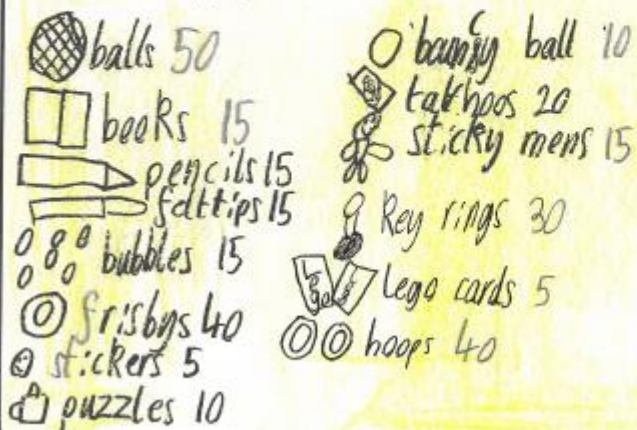 balls 50
books 15
pencils 15
felt tips 15
bubbles 15
frisbys 40
stickers 5
puzzles 10
bouncy ball 10
tathoos 20
sticky mens 15
Key rings 30
Lego cards 5
hoops 40